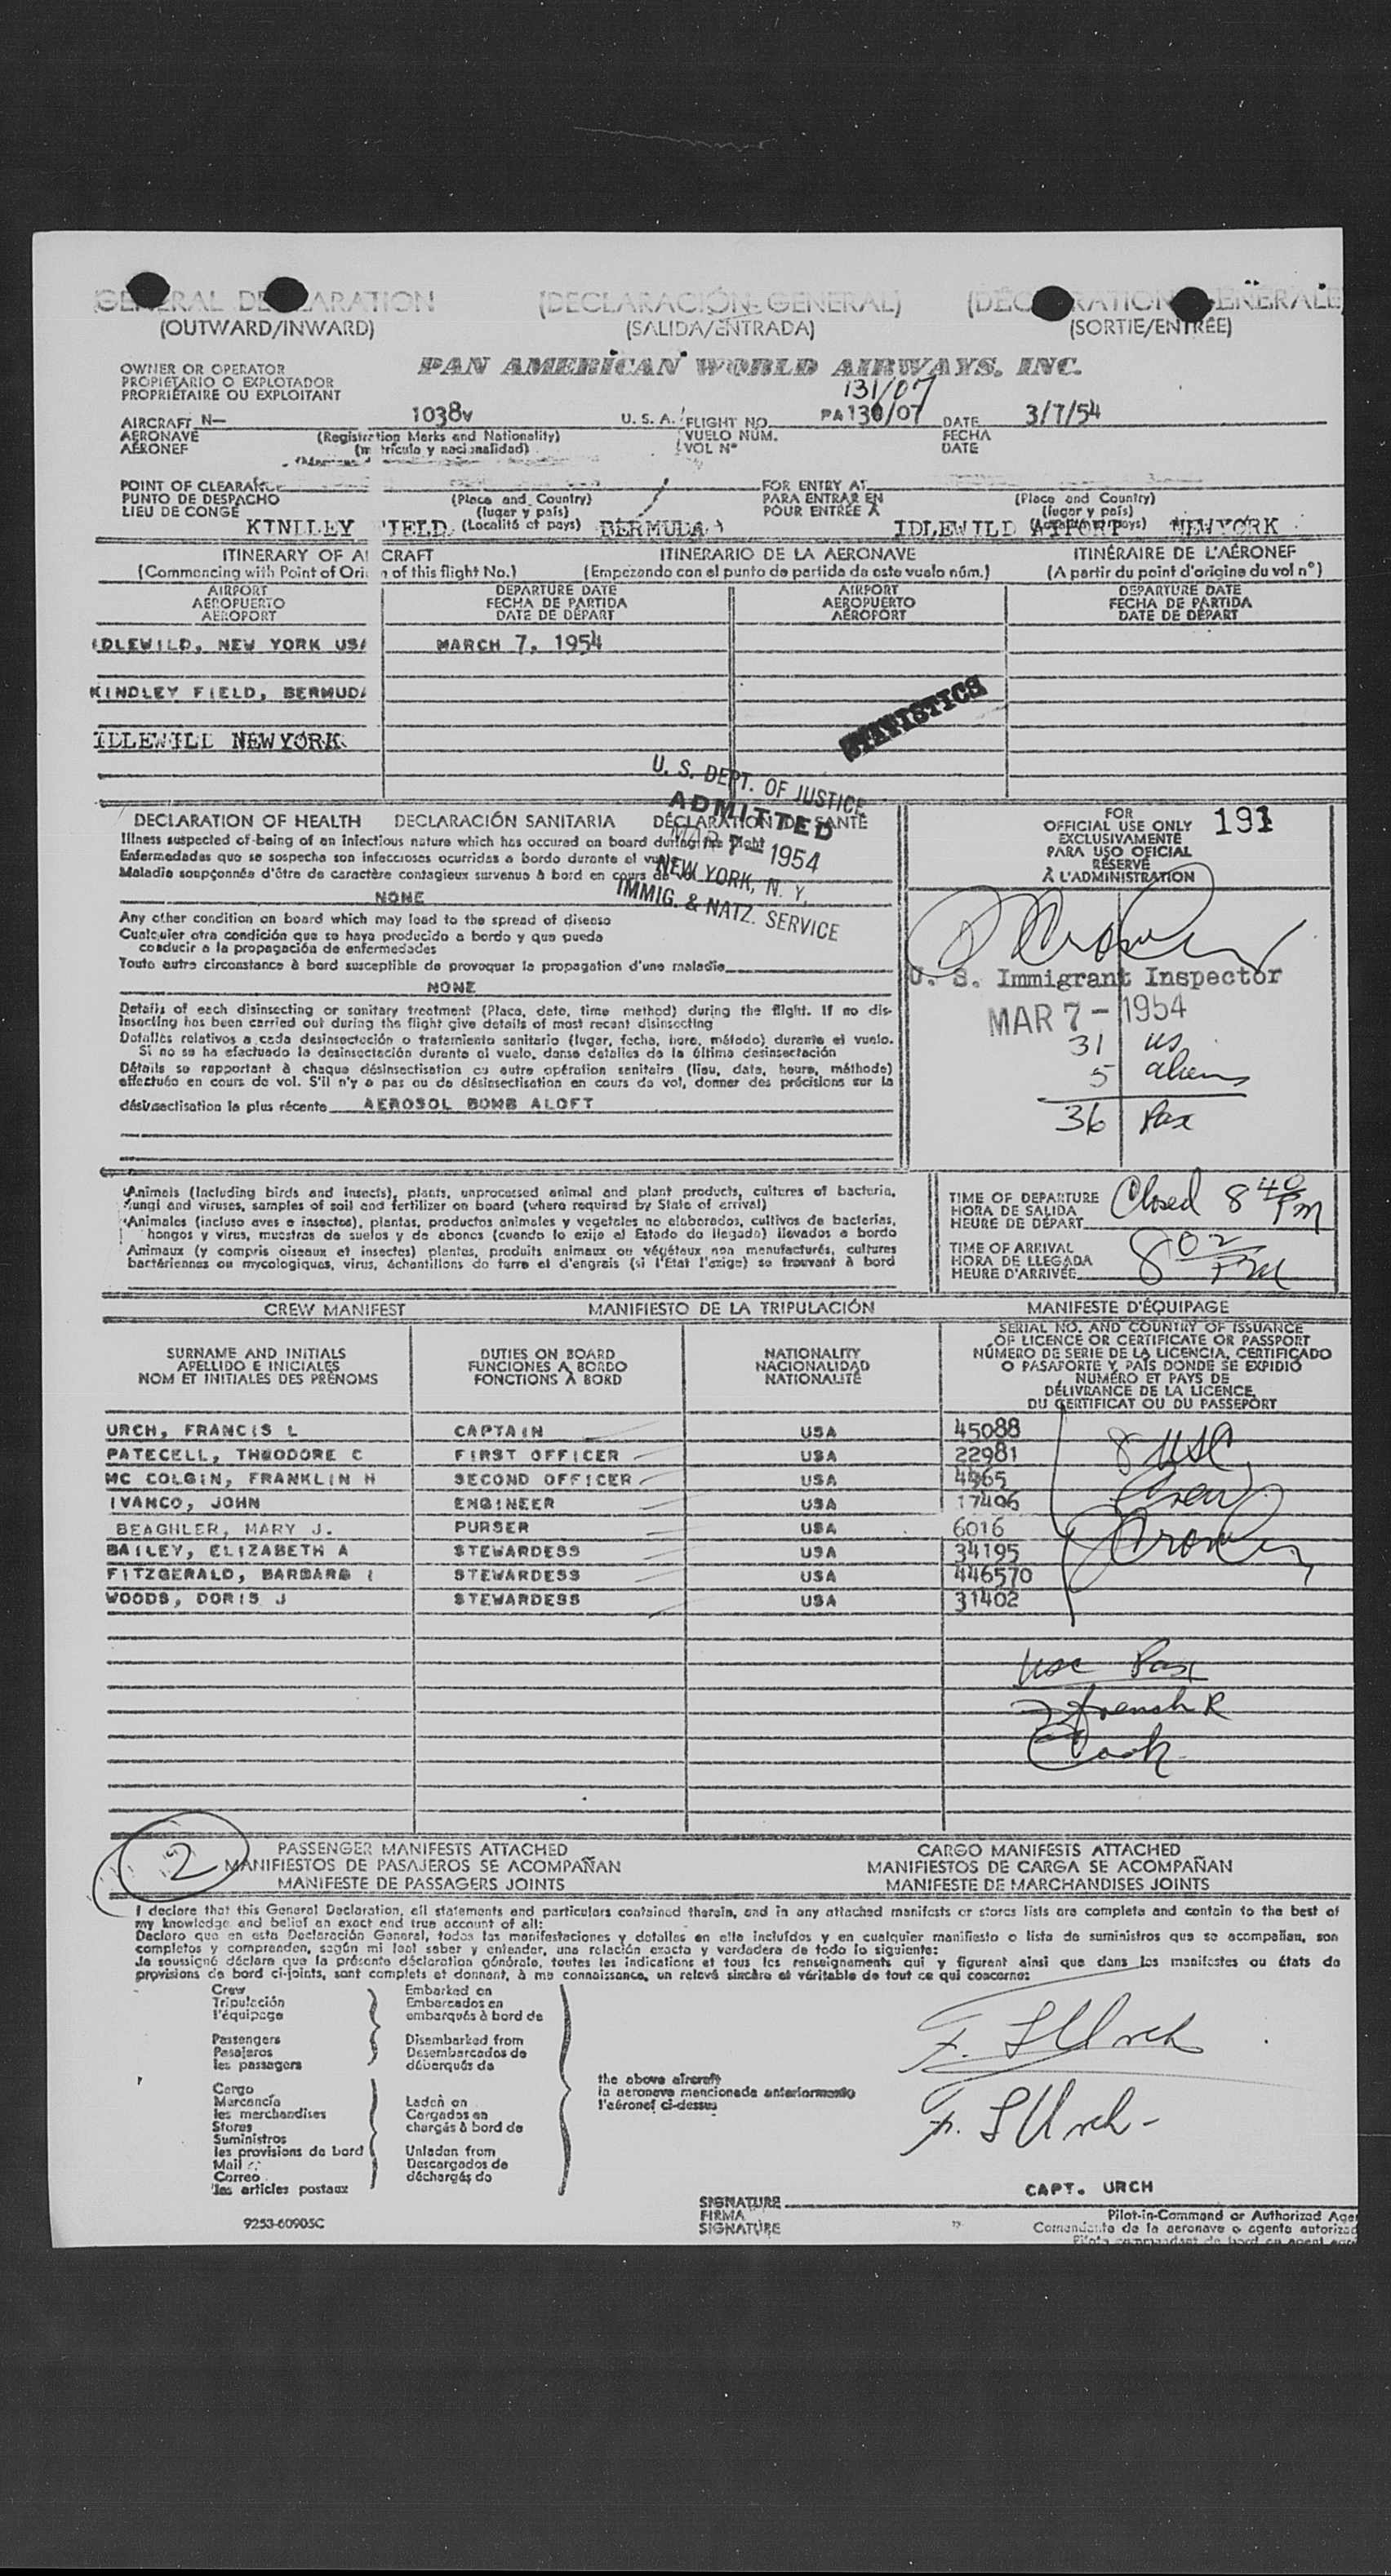 GENERAL DECLARATION (DECLARACIÓN GENERAL) (DÉCLARATION GÉNÉRALE
(OUTWARD/INWARD) (SALIDA/ENTRADA) (SORTIE/ENTRÉE)
OWNER OR OPERATOR PAN AMERICAN WORLD AIRWAYS, INC.
PROPIETARIO O EXPLOTADOR
PROPRIÉTAIRE OU EXPLOITANT
131/07
AIRCRAFT N— 1038V U. S. A. FLIGHT NO. PA130/07 DATE 3/7/54
AERONAVE (Registration Marks and Nationality) VUELO NÚM. FECHA
AÉRONEF (matrícula y nacionalidad) VOL Nº DATE
POINT OF CLEARANCE FOR ENTRY AT
PUNTO DE DESPACHO (Place and Country) PARA ENTRAR EN (Place and Country)
LIEU DE CONGÉ (lugar y país) POUR ENTRÉE À (lugar y país)
KINDLEY FIELD (Localité et pays) BERMUDA IDLEWILD AIPORT NEWYORK
ITINERARY OF AI CRAFT ITINERARIO DE LA AERONAVE ITINÉRAIRE DE L'AÉRONEF
(Commencing with Point of Ori n of this flight No.) (Empezando con el punto de partida de este vuelo núm.) (A partir du point d'origine du vol nº)
AIRPORT DEPARTURE DATE AIRPORT DEPARTURE DATE
AEROPUERTO FECHA DE PARTIDA AEROPUERTO FECHA DE PARTIDA
AÉROPORT DATE DE DÉPART AÉROPORT DATE DE DÉPART
IDLEWILD, NEW YORK USA MARCH 7, 1954
KINDLEY FIELD, BERMUDA
STATISTICS
IDLEWILD NEWYORK
U. S. DEPT. OF JUSTICE
ADMITTED
MAR 7 – 1954
NEW YORK, N. Y.
IMMIG. & NATZ. SERVICE
DECLARATION OF HEALTH DECLARACIÓN SANITARIA DÉCLARATION DE SANTÉ
Illness suspected of being of an infectious nature which has occured on board during the flight
Enfermedades que se sospecha son infecciosas ocurridas a bordo durante el vuelo
Maladie soupçonnée d'être de caractère contagieux survenue à bord en cours de vol
NONE
Any other condition on board which may lead to the spread of disease
Cualquier otra condición que se haya producido a bordo y que pueda
conducir a la propagación de enfermedades
Toute autre circonstance à bord susceptible de provoquer la propagation d'une maladie
NONE
Details of each disinsecting or sanitary treatment (Place, date, time method) during the flight. If no dis-
insecting has been carried out during the flight give details of most recent disinsecting
Detalles relativos a cada desinsectación o tratamiento sanitario (lugar, fecha, hora, método) durante el vuelo.
Si no se ha efectuado la desinsectación durante el vuelo, danse detalles de la última desinsectación
Détails se rapportant à chaque désinsectisation ou autre opération sanitaire (lieu, date, heure, méthode)
effectuée en cours de vol. S'il n'y a pas eu de désinsectisation en cours de vol, donner des précisions sur la
désinsectisation la plus récente AEROSOL BOMB ALOFT
FOR
OFFICIAL USE ONLY 191
EXCLUSIVAMENTE
PARA USO OFICIAL
RÉSERVÉ
À L'ADMINISTRATION
U. S. Immigrant Inspector
MAR 7 – 1954
31 us
5 aliens
36 Pax
Animals (including birds and insects), plants, unprocessed animal and plant products, cultures of bacteria,
fungi and viruses, samples of soil and fertilizer on board (where required by State of arrival)
Animales (incluso aves e insectos), plantas, productos animales y vegetales no elaborados, cultivos de bacterias,
hongos y virus, muestras de suelos y de abonos (cuando lo exije el Estado de llegada) llevados a bordo
Animaux (y compris oiseaux et insectes) plantes, produits animaux ou végétaux non manufacturés, cultures
bactériennes ou mycologiques, virus, échantillons de terre et d'engrais (si l'État l'exige) se trouvant à bord
TIME OF DEPARTURE Closed 8 40 Pm
HORA DE SALIDA
HEURE DE DÉPART
TIME OF ARRIVAL 8 02 Pm
HORA DE LLEGADA
HEURE D'ARRIVÉE
CREW MANIFEST MANIFIESTO DE LA TRIPULACIÓN MANIFESTE D'ÉQUIPAGE
SURNAME AND INITIALS DUTIES ON BOARD NATIONALITY
APELLIDO E INICIALES FUNCIONES A BORDO NACIONALIDAD
NOM ET INITIALES DES PRÉNOMS FONCTIONS À BORD NATIONALITÉ
SERIAL NO. AND COUNTRY OF ISSUANCE
OF LICENCE OR CERTIFICATE OR PASSPORT
NÚMERO DE SERIE DE LA LICENCIA, CERTIFICADO
O PASAPORTE Y PAÍS DONDE SE EXPIDIÓ
NUMÉRO ET PAYS DE
DÉLIVRANCE DE LA LICENCE,
DU CERTIFICAT OU DU PASSEPORT
URCH, FRANCIS L CAPTAIN USA 45088
PATECELL, THEODORE C FIRST OFFICER USA 22981
MC COLGIN, FRANKLIN H SECOND OFFICER USA 4965
IVANCO, JOHN ENGINEER USA 17496
BEAGHLER, MARY J. PURSER USA 6016
BAILEY, ELIZABETH A STEWARDESS USA 34195
FITZGERALD, BARBARB I STEWARDESS USA 446570
WOODS, DORIS J STEWARDESS USA 31402
8 USC
Crew
usc Pax
French R
Cook
2
PASSENGER MANIFESTS ATTACHED CARGO MANIFESTS ATTACHED
MANIFIESTOS DE PASAJEROS SE ACOMPAÑAN MANIFIESTOS DE CARGA SE ACOMPAÑAN
MANIFESTE DE PASSAGERS JOINTS MANIFESTE DE MARCHANDISES JOINTS
I declare that this General Declaration, all statements and particulars contained therein, and in any attached manifests or stores lists are complete and contain to the best of
my knowledge and belief an exact and true account of all:
Declaro que en esta Declaración General, todas las manifestaciones y detalles en ella incluídos y en cualquier manifiesto o lista de suministros que se acompañan, son
completos y comprenden, según mi leal saber y entender, una relación exacta y verdadera de todo lo siguiente:
Je soussigné déclare que la présente déclaration générale, toutes les indications et tous les renseignements qui y figurent ainsi que dans les manifestes ou états de
provisions de bord ci-joints, sont complets et donnent, à ma connaissance, un relevé sincère et véritable de tout ce qui concerne:
Crew Embarked on
Tripulación Embarcados en
l'équipage embarqués à bord de
Passengers Disembarked from
Pasajeros Desembarcados de
les passagers débarqués de
the above aircraft
la aeronave mencionada anteriormente
l'aéronef ci-dessus
Cargo
Mercancía Laden on
les merchandises Cargados en
Stores chargés à bord de
Suministros
les provisions de bord Unladen from
Mail Descargados de
Correo déchargés de
les articles postaux
F. L Urch
F. L Urch
CAPT. URCH
SIGNATURE
FIRMA
SIGNATURE
Pilot-in-Command or Authorized Age
Comandante de la aeronave o agente autorizad
9253-60905C